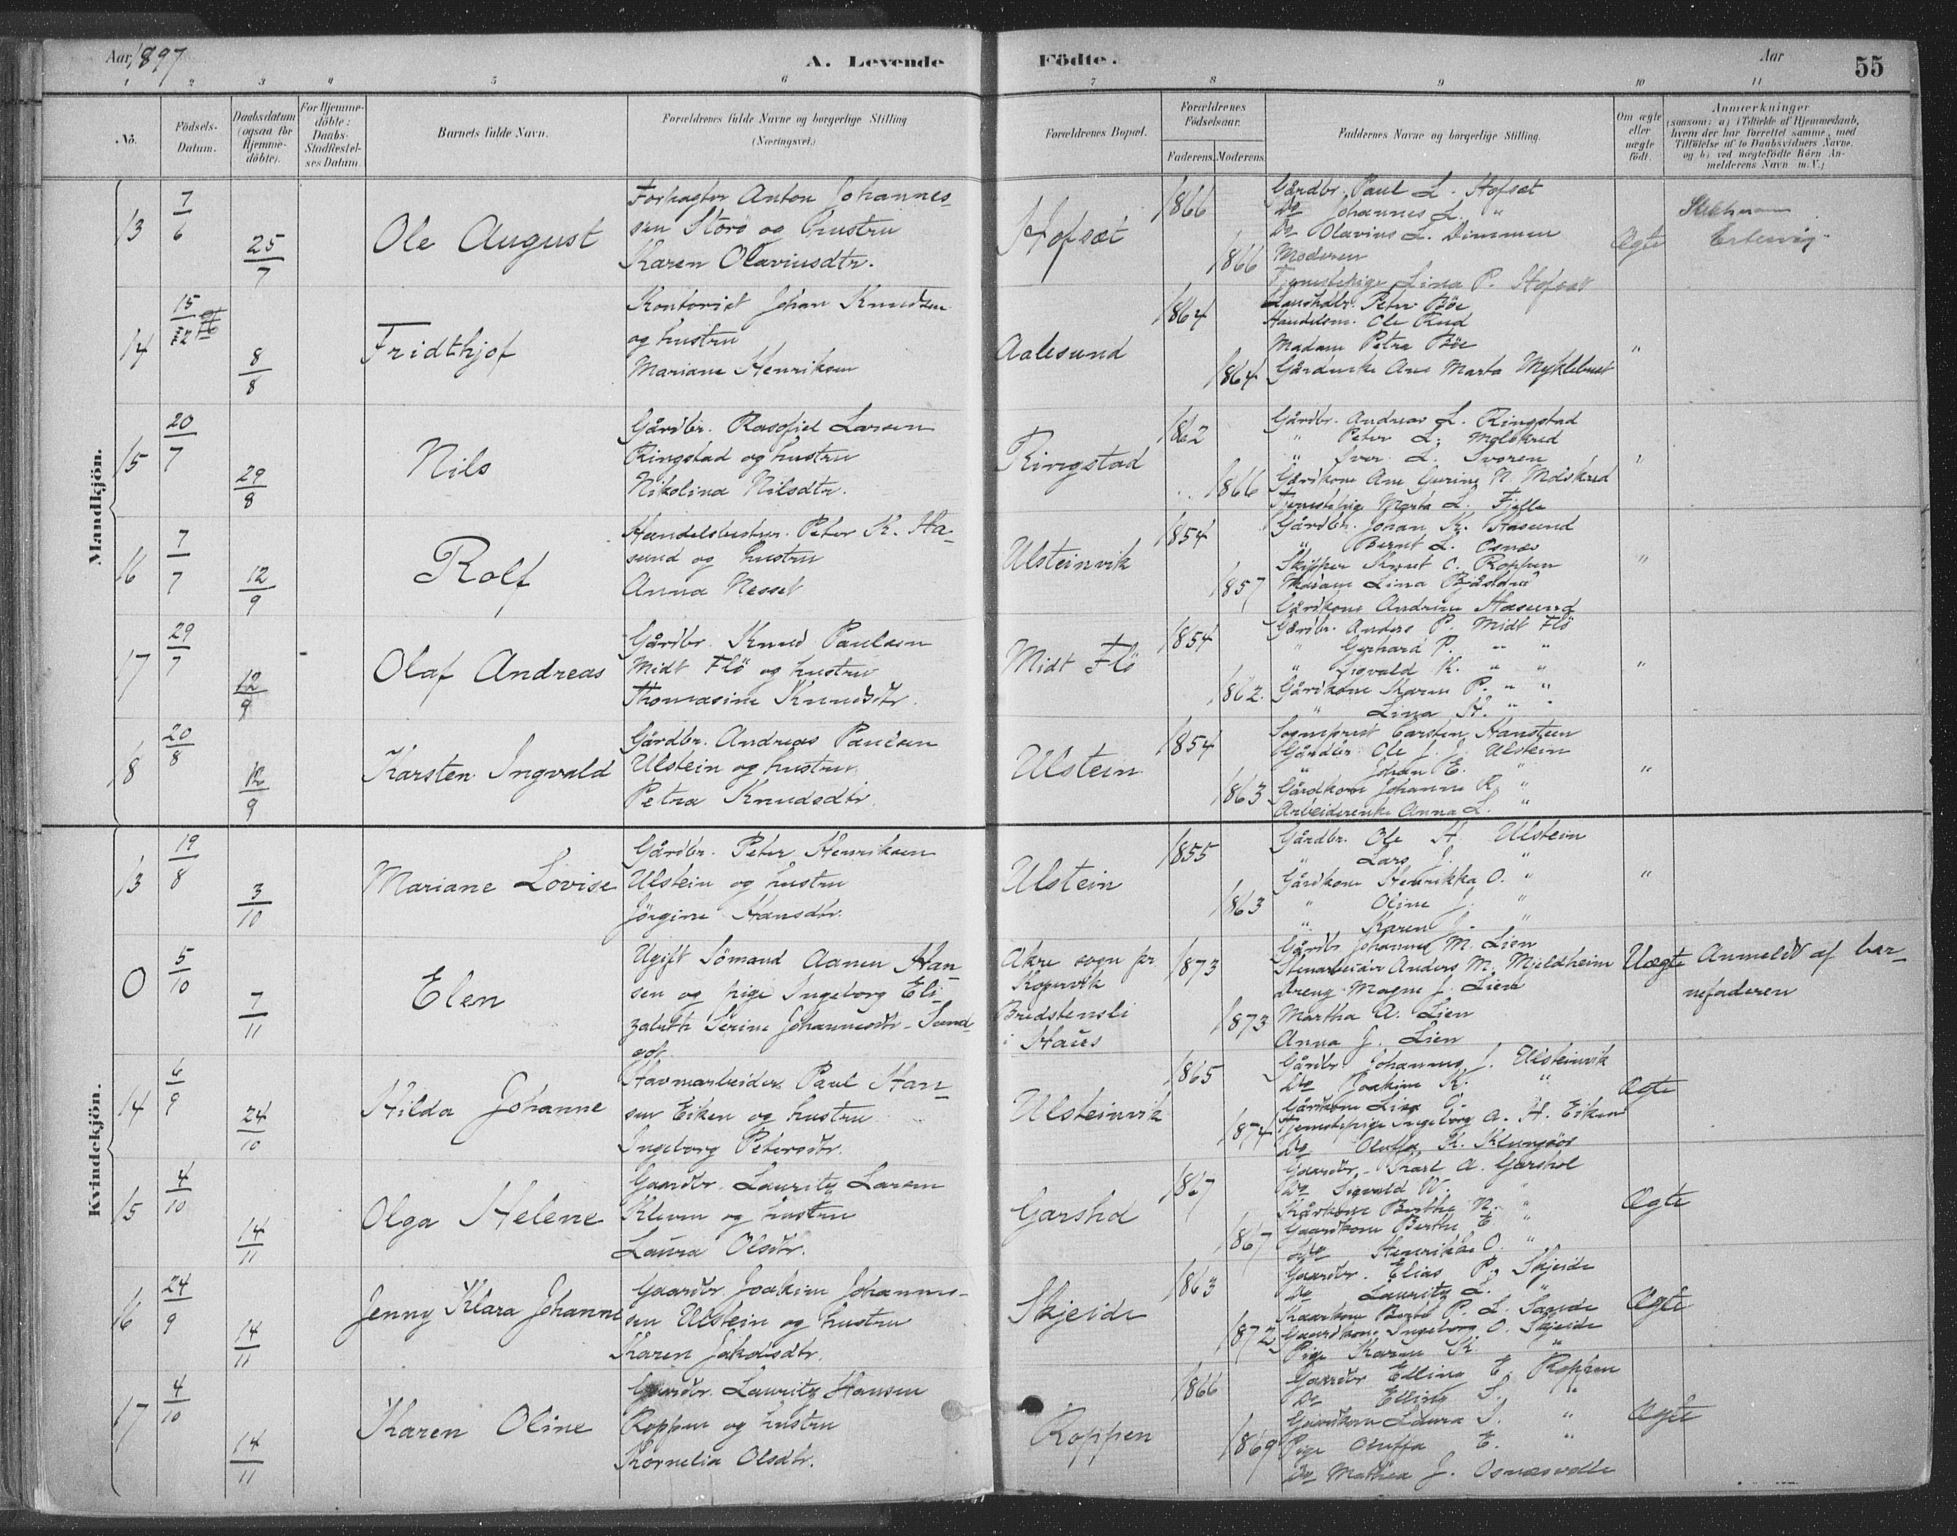 Aar 1897
A. Levende Födte.
Aar
55
1 2 3 4 5 6 7 8 9 10 11
No.
Födsels-Datum.
Daabsdatum (ogsaa for Hjemme-döbte).
For Hjemme-döbte: Daabs-Stadfæstel-ses Datum.
Barnets fulde Navn.
Forældrenes fulde Navne og borgerlige Stilling (Næringsvei.)
Forældrenes Bopæl.
Forældrenes Födselsaar.
Faderens. Moderens.
Faddernes Navne og borgerlige Stilling.
Om ægte eller uægte födt.
Anmærkninger
(saasom: a) i Tilfælde af Hjemmedaab,
hvem der har forrettet samme, med
Tilföielse af to Daabsvidners Navne,
og b) ved uægtefödte Börn An-
melderens Navn m. V.)
Mandkjön.
13
7/6
25/7
Ole August
Forhagter Anton Johannes-
sen Storö og hustru
Karen Olaviusdtr.
Hofsæt
1866
1866
Gårdbr. Paul L. Hofsæt
Do Johannes L. "
Do Olavius L. Dimmen
Moderen
Tjenestepige Lina P. Hofsæt
Ægte
14
15/12 96
8/8
Fridthjof
Kontorist Johan Knudsen
og hustru
Mariane Henriksen
Aalesund
1864
1864
Landhdlr. Peter Böe
Handelsm. Ole Rud
Madam Petra Böe
Gårdenke Ane Marta Myklebust
"
15
20/7
29/8
Nils
Gårdbr. Rasofiel Larsen
Ringstad og hustru
Nikolina Nilsdtr.
Ringstad
1862
1866
Gårdbr. Andreas L. Ringstad
" Peter L. Molskred
" Iver L. Svoren
Gårdkone Ane Gurine N. Molskred
Tjenestepige Marta L. Fjelle
"
16
7/7
12/9
Rolf
Handelsbestyr. Peter K. Ha-
sund og hustru
Anna Nesset
Ulsteinvik
1854
1857
Gårdbr. Johan K. Hasund
" Bernt L. Osnæs
Skipper Knut C. Roppen
Madam Lina Bjåstad
Gårdkone Andrine Hasund
"
17
29/7
12/9
Olaf Andreas
Gårdbr. Knud Paulsen
Midt Flö og hustru
Thomasine Knudsdtr.
Midt Flö
1854
1862.
Gårdbr. Anders P. Midt Flö
" Gerhard P. " "
" Sigvald K. " "
Gårdkone Karen P. " "
" Lina H. " "
"
18
20/8
12/9
Karsten Ingvald
Gårdbr. Andreas Paulsen
Ulstein og hustru
Petra Knudsdtr.
Ulstein
1854
1863
Sogneprest Carsten Hansteen
Gårdbr. Ole J. J. Ulstein
" Johan E. "
Gårdkone Johanne R. "
Arbeiderenke Anna L. "
"
Kvindekjön.
13
19/8
3/10
Mariane Lovise
Gårdbr. Peter Henriksen
Ulstein og hustru
Jörgine Hansdtr.
Ulstein
1855
1863
Gårdbr. Ole H. Ulstein
" Lars J. "
Gårdkone Henrikka O. "
" Oline J. "
" Karen J. "
"
0
5/10
7/11
Elen
Ugift Sömand Aanen Han-
sen og pige Ingeborg Eli-
zabeth Serine Johannesdtr. Sand-
Akre sogn pr
Kopervik
Bredstensli
i Haus
1873
1873
Gårdbr Johannes M. Lien
Stenarbeider Anders M. Mjeldheim
Dreng Magne J. Lien
Martha A. Lien
Anna J. Lien
Uægte
Anmeldt af bar-
nefaderen
14
6/9
24/10
Hilda Johanne
Havnearbeider Paul Han-
sen Eiken og hustru
Ingeborg Petersdtr.
Ulsteinvik
1865
1874
Gårdbr. Johannes J. Ulsteinvik
Do Joakim K. "
Gårdkone Lina O.
Tjenestepige Ingeborg A. H. Eiken
Do Oluffa K. Klungsör
Ægte
15
4/10
14/11
Olga Helene
Gaardbr. Lauritz Larsen
Kleven og hustru
Laura Olsdtr.
Garshol
1867
1867
Gaardbr. Karl A. Garshol
Do Sigvald W. "
Kårkone Berthe N. "
Gaardkone Berthe E. "
Do Henrikke O. "
Ægte
16
24/9
14/11
Jenny Klara Johanne
Gaardbr Joakim Johannes-
sen Ulstein og hustru
Karen Jakobsdtr.
Skjeide
1863
1872
Gaardbr. Elias P. Skjeide
Do Lauritz L. "
Kaarkone Berte P. L. Saunde
Gaardkone Ingeborg O. Skjeide
Pige Karen K. "
Ægte
17
4/10
14/11
Karen Oline
Gaardbr. Lauritz Hansen
Roppen og hustru
Kornelia Olsdtr.
Roppen
1866
1869
Gaardbr Elling E. Roppen
Do Elling S. "
Gaardkone Laura S. "
Pige Oluffa E. "
Do Mathea J. Osnesvolle
Ægte